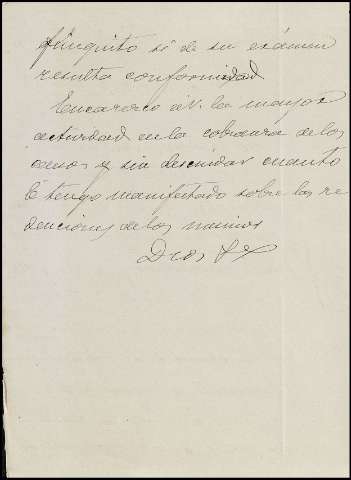 finiquito si de su exámen
resulta conformidad
Encarezco á V. la mayor
actividad en la cobranza de los
censos y sin descuidar cuanto
le tengo manifestado sobre las re
denciones de los mismos
Dios